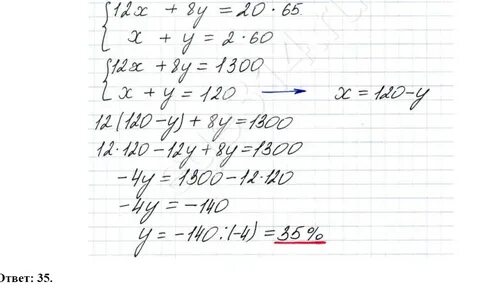 {12x + 8y = 20 · 65
x + y = 2 · 60
{12x + 8y = 1300
x + y = 120 → x = 120 - y
12(120 - y) + 8y = 1300
12 · 120 - 12y + 8y = 1300
-4y = 1300 - 12 · 120
-4y = -140
y = -140 : (-4) = 35%
Ответ: 35.